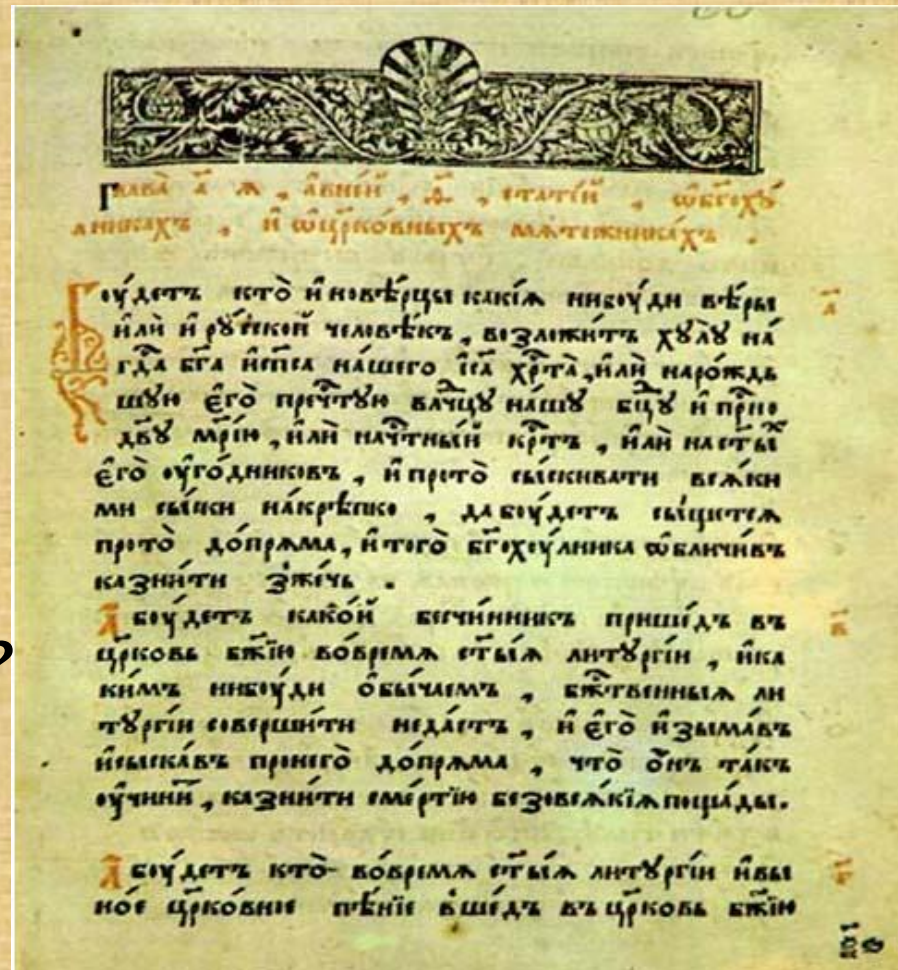 Глава̀ а҃ѧ , а҆вне́й , ѳ҃ , стате́й , ѡ҆бг҃охꙋ́
лникахъ , и҆ ѡ҆цр҃ко́вныхъ мѧте́жникахъ .
Боу́детъ кто̀ и҆новѣ́рцы какі́ѧ нибоу́ди вѣ́ры а҃
и҆лѝ и҆ рꙋ́сской человѣ́къ , возложи́тъ хꙋлꙋ̀ на́
гдⷭ҇а бг҃а и҆сп҃са на́шего і҆са҃ хрⷭ҇та̀ , и҆лѝ наро́ждь
шꙋю є҆го̀ преⷱ҇тꙋю влⷣчцꙋ на́шꙋ бцⷣꙋ и҆ прⷭ҇но
дв҃ꙋ мр҃і́ю , и҆лѝ наⷱ҇тны́й крⷭ҇тъ , и҆лѝ на ст҃ы́ⷯ
є҆го̀ оу҆го́дниковъ , и҆ прото̀ сы́скивати всѧ́ки
ми сы́ски на́крѣпко , да боу́детъ сы́щетсѧ
прото̀ до́прѧма , и҆ того̀ бг҃охоу́лника ѡ҆бличи́въ
казни́ти зже́чь .
А҆ боу́детъ како́й бесчи́нникъ прише́дъ въ в҃
цр҃ковь бж҃їю во́времѧ ст҃ы́ѧ литꙋргі́и , и҆ка
ки́мъ нибоу́ди ѻ҆бы́чаемъ , бжⷭ҇твенныѧ ли
тꙋргі́и соверши́ти неда́стъ , и҆ є҆го̀ и҆зыма́въ
и҆сыска́въ пронего̀ до́прѧма , что̀ ѻ҆́нъ та́къ
оу҆чини́ⷧ , казни́ти сме́ртїю безовсѧ́кїѧ поща́ды .
А҆ боу́детъ кто̀ во́времѧ ст҃ы́ѧ литꙋргі́и и҆вы г҃
но́е цр҃ко́вное пѣ́нїе вше́дъ въ цр҃ковь бж҃їю